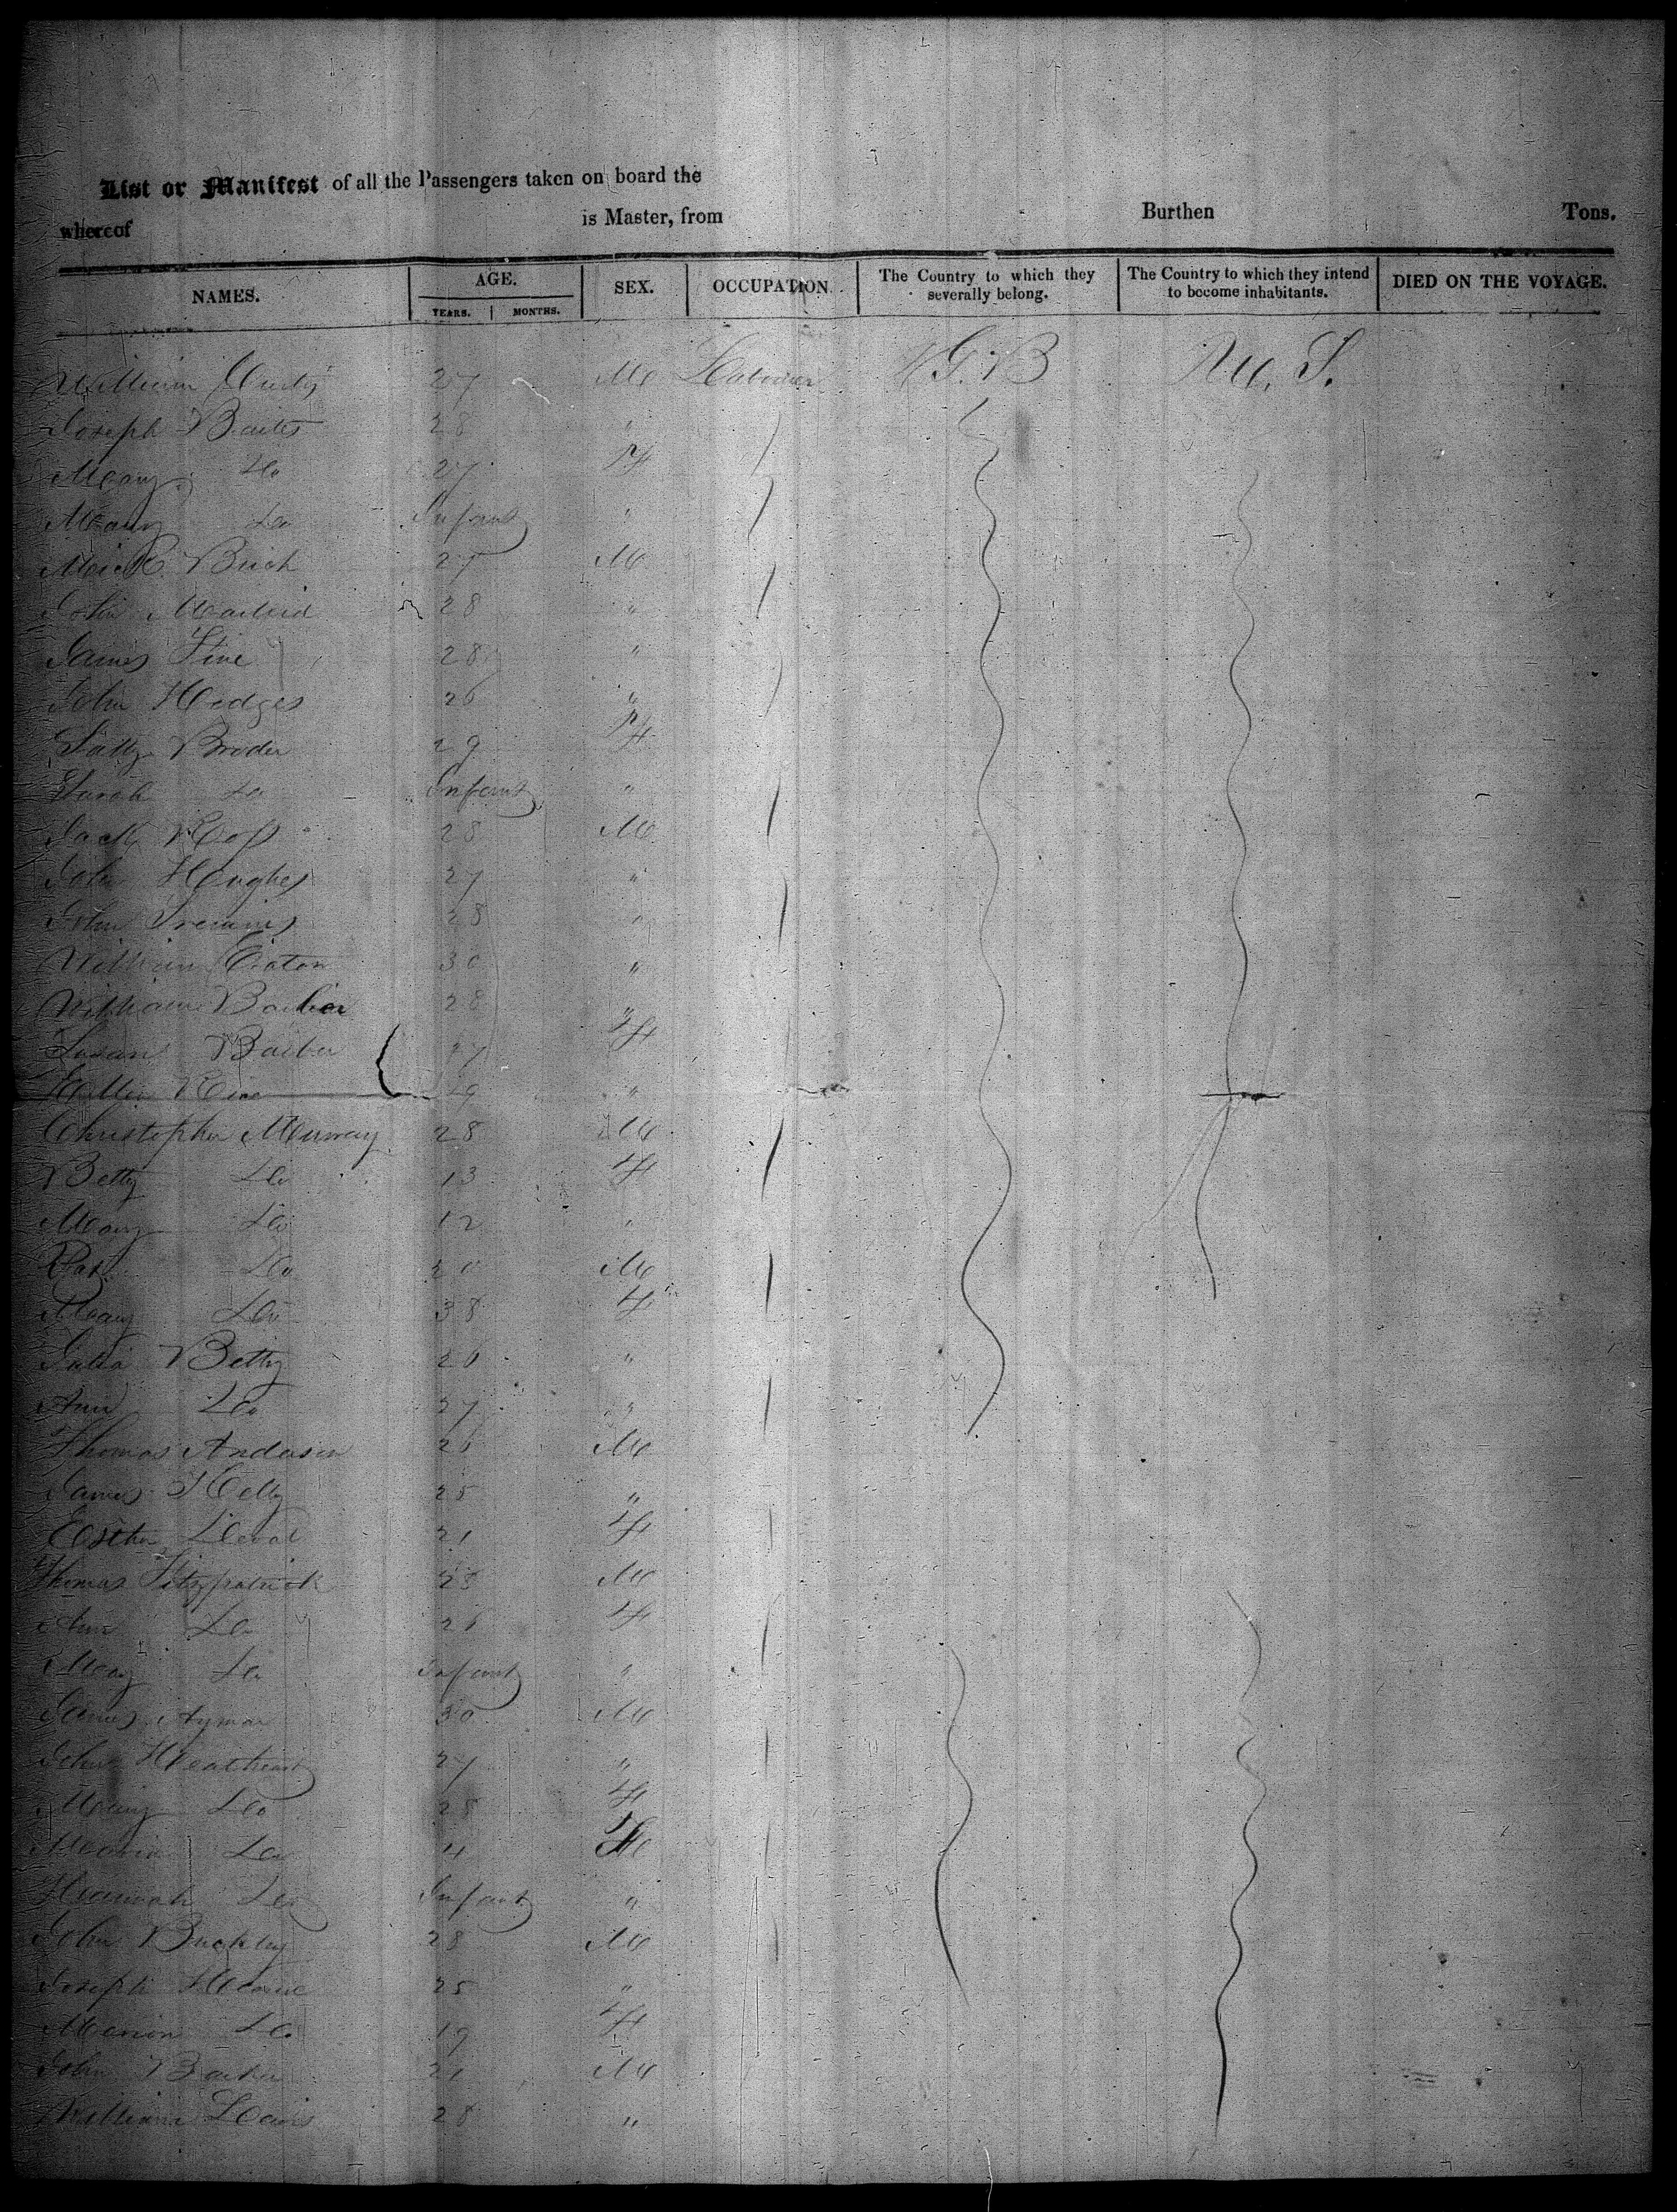 List or Manifest of all the Passengers taken on board the
whereof is Master, from Burthen Tons.
NAMES. AGE. SEX. OCCUPATION. The Country to which they severally belong. The Country to which they intend to become inhabitants. DIED ON THE VOYAGE.
YEARS. MONTHS.
William 27 M Labourer G. B U. S.
Joseph Bates 28 "
Mary Do 27 F
Mary Do Infant "
Birch 27 M
John 28 "
James Fine 28 "
John Hodges 26 "
Sally Broder 29 F
Sarah Do Infant "
Jack 28 M
John Hughes 27 "
John 28 "
William Eaton 30 "
William Barber 28 "
Susan Barber 27 F
19 "
Christopher Murray 28 M
Betty Do 13 F
Mary Do 12 "
Pat Do M
Mary Do 38 F
Julia Betty 26 "
Ann Do 27 "
Thomas Anderson 26 M
James Kelly 25 "
Esther 21 F
Thomas Fitzpatrick 28 M
Ann Do 26 F
Mary Do Infant "
James 30 M
John 27 "
Mary Do 28 F
Maria Do 4 F
Hannah Do Infant "
John Buckley 28 M
Joseph 25 "
Marion Do 19 F
John 21 M
William Davis 28 "